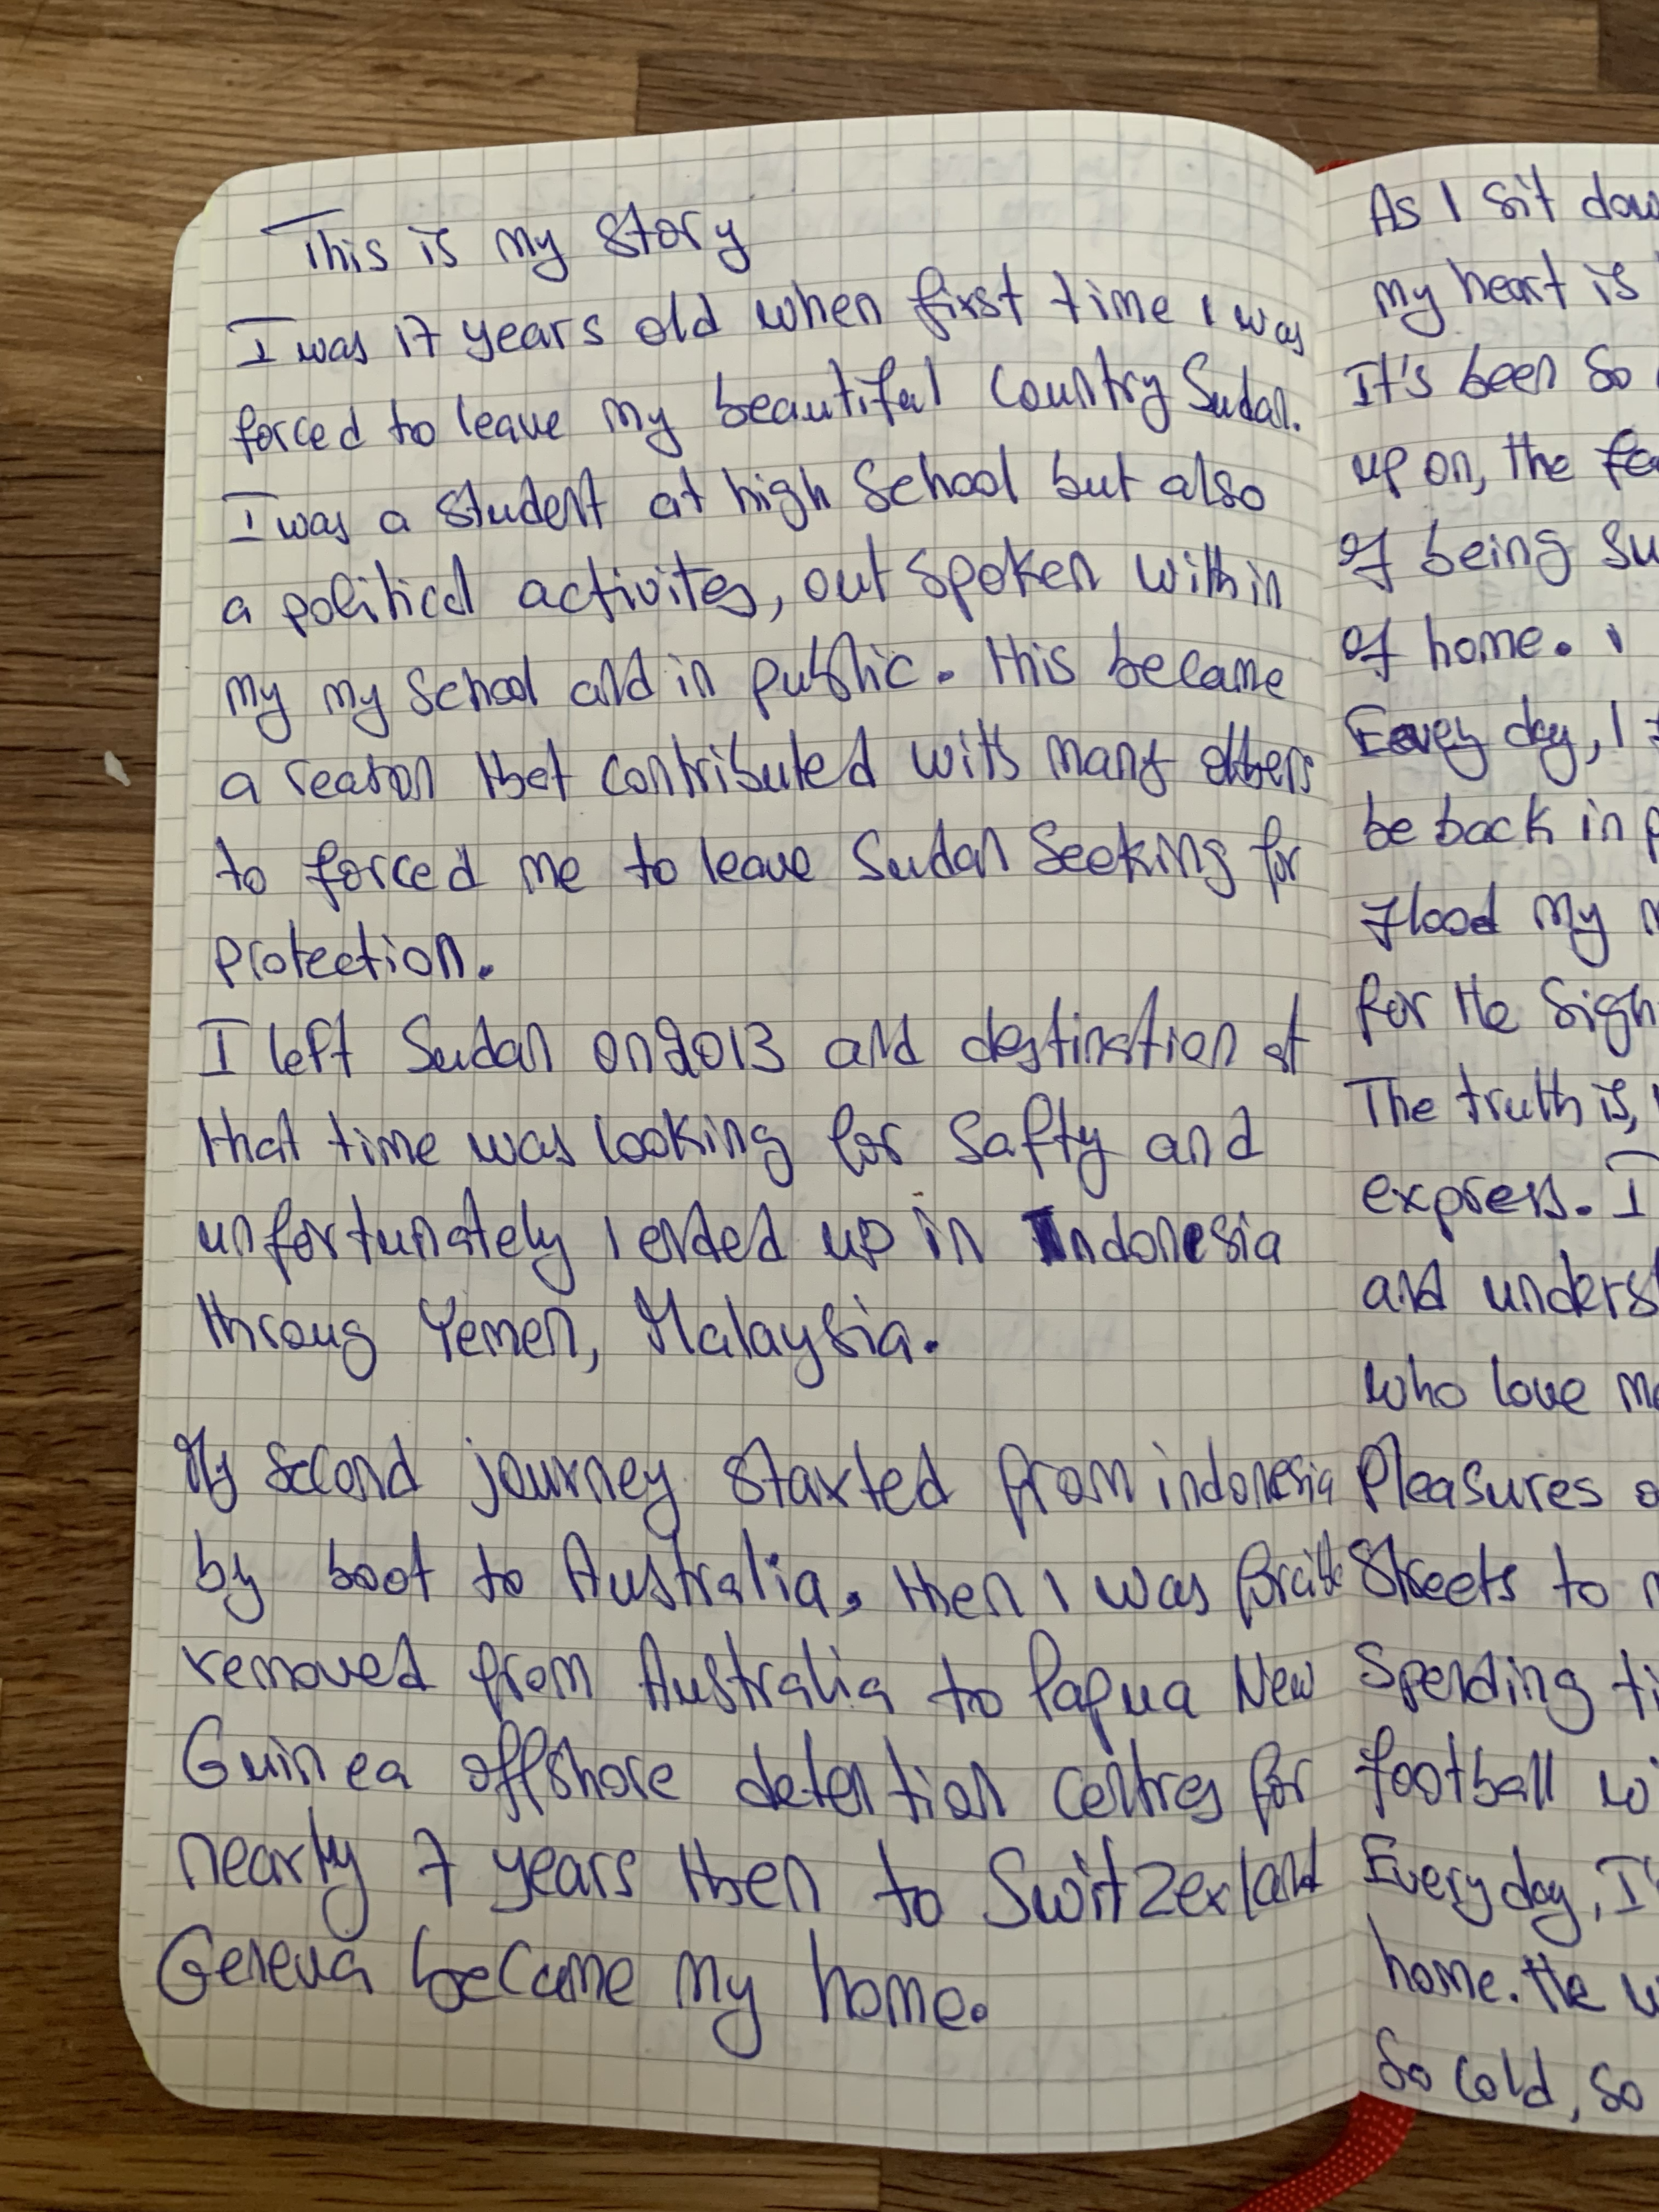 This is my story
I was 17 years old when first time I was
forced to leave my beautiful Country Sudan.
I was a student at high School but also
a political activites, out spoken within
my my school and in public. this became
a reason that contributed with many others
to forced me to leave Sudan Seeking for
protection.
I left Sudan on 2013 and destination at
that time was looking for Safty and
unfortunately I ended up in Indonesia
throug Yemen, Malaysia.
My Second journey started from indonesia
by boot to Australia, then I was
removed from Australia to Papua New
Guinea offshore detention centres for
nearly 7 years then to Switzerland
Geneva became my home.
As I sit
my heart is
It's been so
up on, the
of being
of home. I
Every day, I
be back in
flood my
for the
The truth is,
express. I
and
who love
Pleasures
Streets to
Spending
football
Every day,
home. the
So cold, so